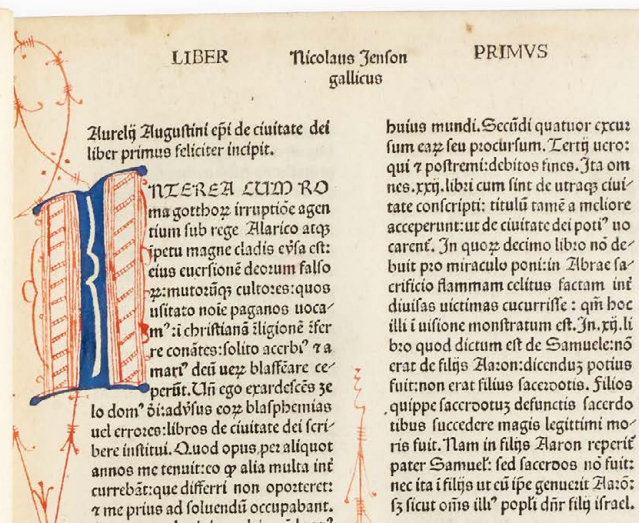 LIBER
Nicolaus Jenson
gallicus
PRIMVS
Aurelij Augustini ep̄i de ciuitate dei
liber primus feliciter incipit.
INTEREA CUM RO
ma gotthoꝝ irruptiōe agen
tium sub rege Alarico atqꝫ
īpetu magne cladis eṽsa est:
eius euersionē deorum falso
ꝝ:mutorūqꝫ cultores:quos
usitato noīe paganos uoca⸗
mꝰ:ī christianā religionē īfer
re conātes:solito acerbiꝰ ⁊ a
mariꝰ deū ueꝝ blasfēare ce⸗
perūt. Uñ ego exardescēs ze
lo domꝰ ōi:adṽsus eoꝝ blasphemias
uel errores:libros de ciuitate dei scri⸗
bere institui. Quod opus per aliquot
annos me tenuit:eo ꝙ alia multa int̄
currebāt:que differri non oporteret:
⁊ me prius ad soluendū occupabant.
huius mundi. Secūdi quatuor excur
sum eaꝝ seu procursum. Tertij uero:
qui ⁊ postremi:debitos fines. Ita om
nes.xxij.libri cum sint de utraqꝫ ciui⸗
tate conscripti: titulū tamē a meliore
acceperunt:ut de ciuitate dei potiꝰ uo
carent̄. In quoꝝ decimo libro nō de⸗
buit pro miraculo poni:in Abrae sa⸗
crificio flammam celitus factam int̄
diuisas uictimas cucurrisse : qm̄ hoc
illi ī uisione monstratum est. In.xij.li
bro quod dictum est de Samuele:nō
erat de filijs Aaron:dicenduꝫ potius
fuit:non erat filius sacerdotis. Filios
quippe sacerdotuꝫ defunctis sacerdo
tibus succedere magis legittimi mo⸗
ris fuit. Nam in filijs Aaron reperit̄
pater Samuel̄: sed sacerdos nō fuit:
nec ita ī filijs ut eū ip̄e genuerit Aarō:
sꝫ sicut oīns illiꝰ popl̄i dn̄r filij israel.